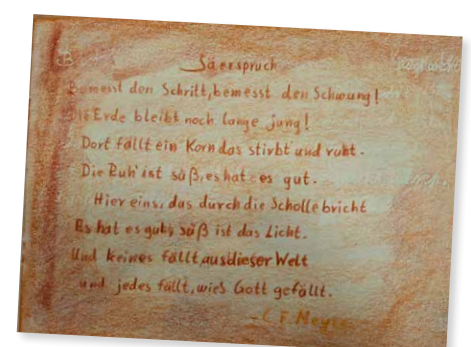 Säerspruch
Bemesst den Schritt, bemesst den Schwung!
Die Erde bleibt noch lange jung!
Dort fällt ein Korn das stirbt und ruht.
Die Ruh' ist süß, es hat es gut.
Hier eins, das durch die Scholle bricht
Es hat es gut, süß ist das Licht.
Und keines fällt aus dieser Welt
und jedes fällt, wie's Gott gefällt.
- C F Meyer